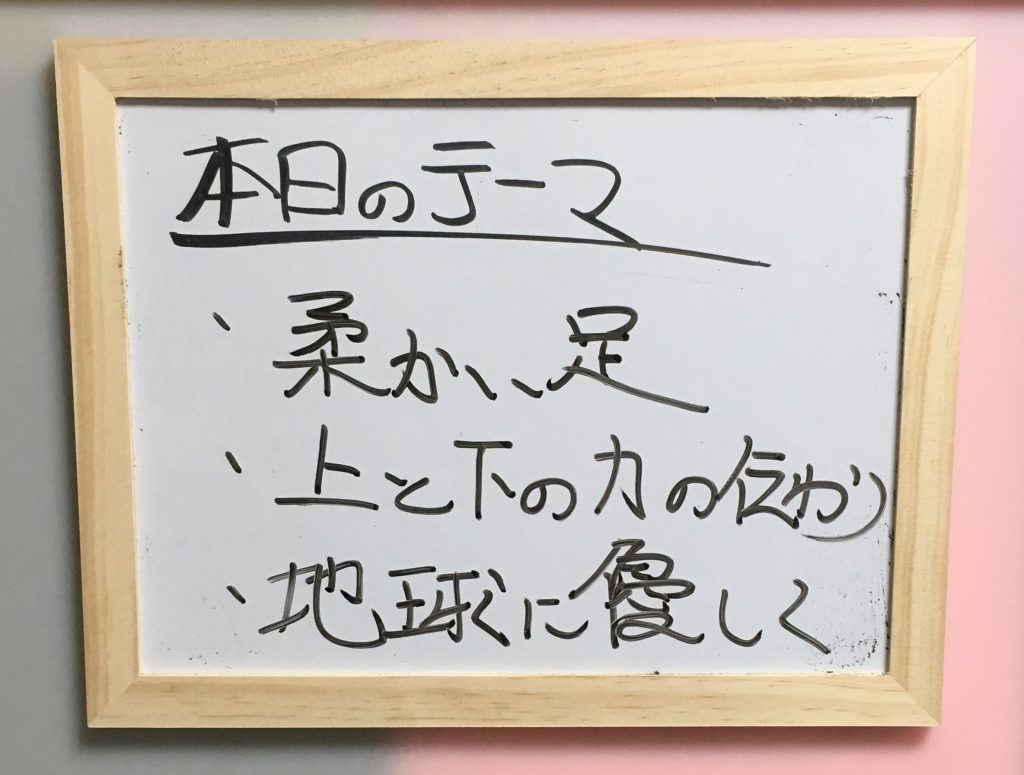 本日のテーマ
、柔かい足
、上と下の力の伝わり
、地球に優しく